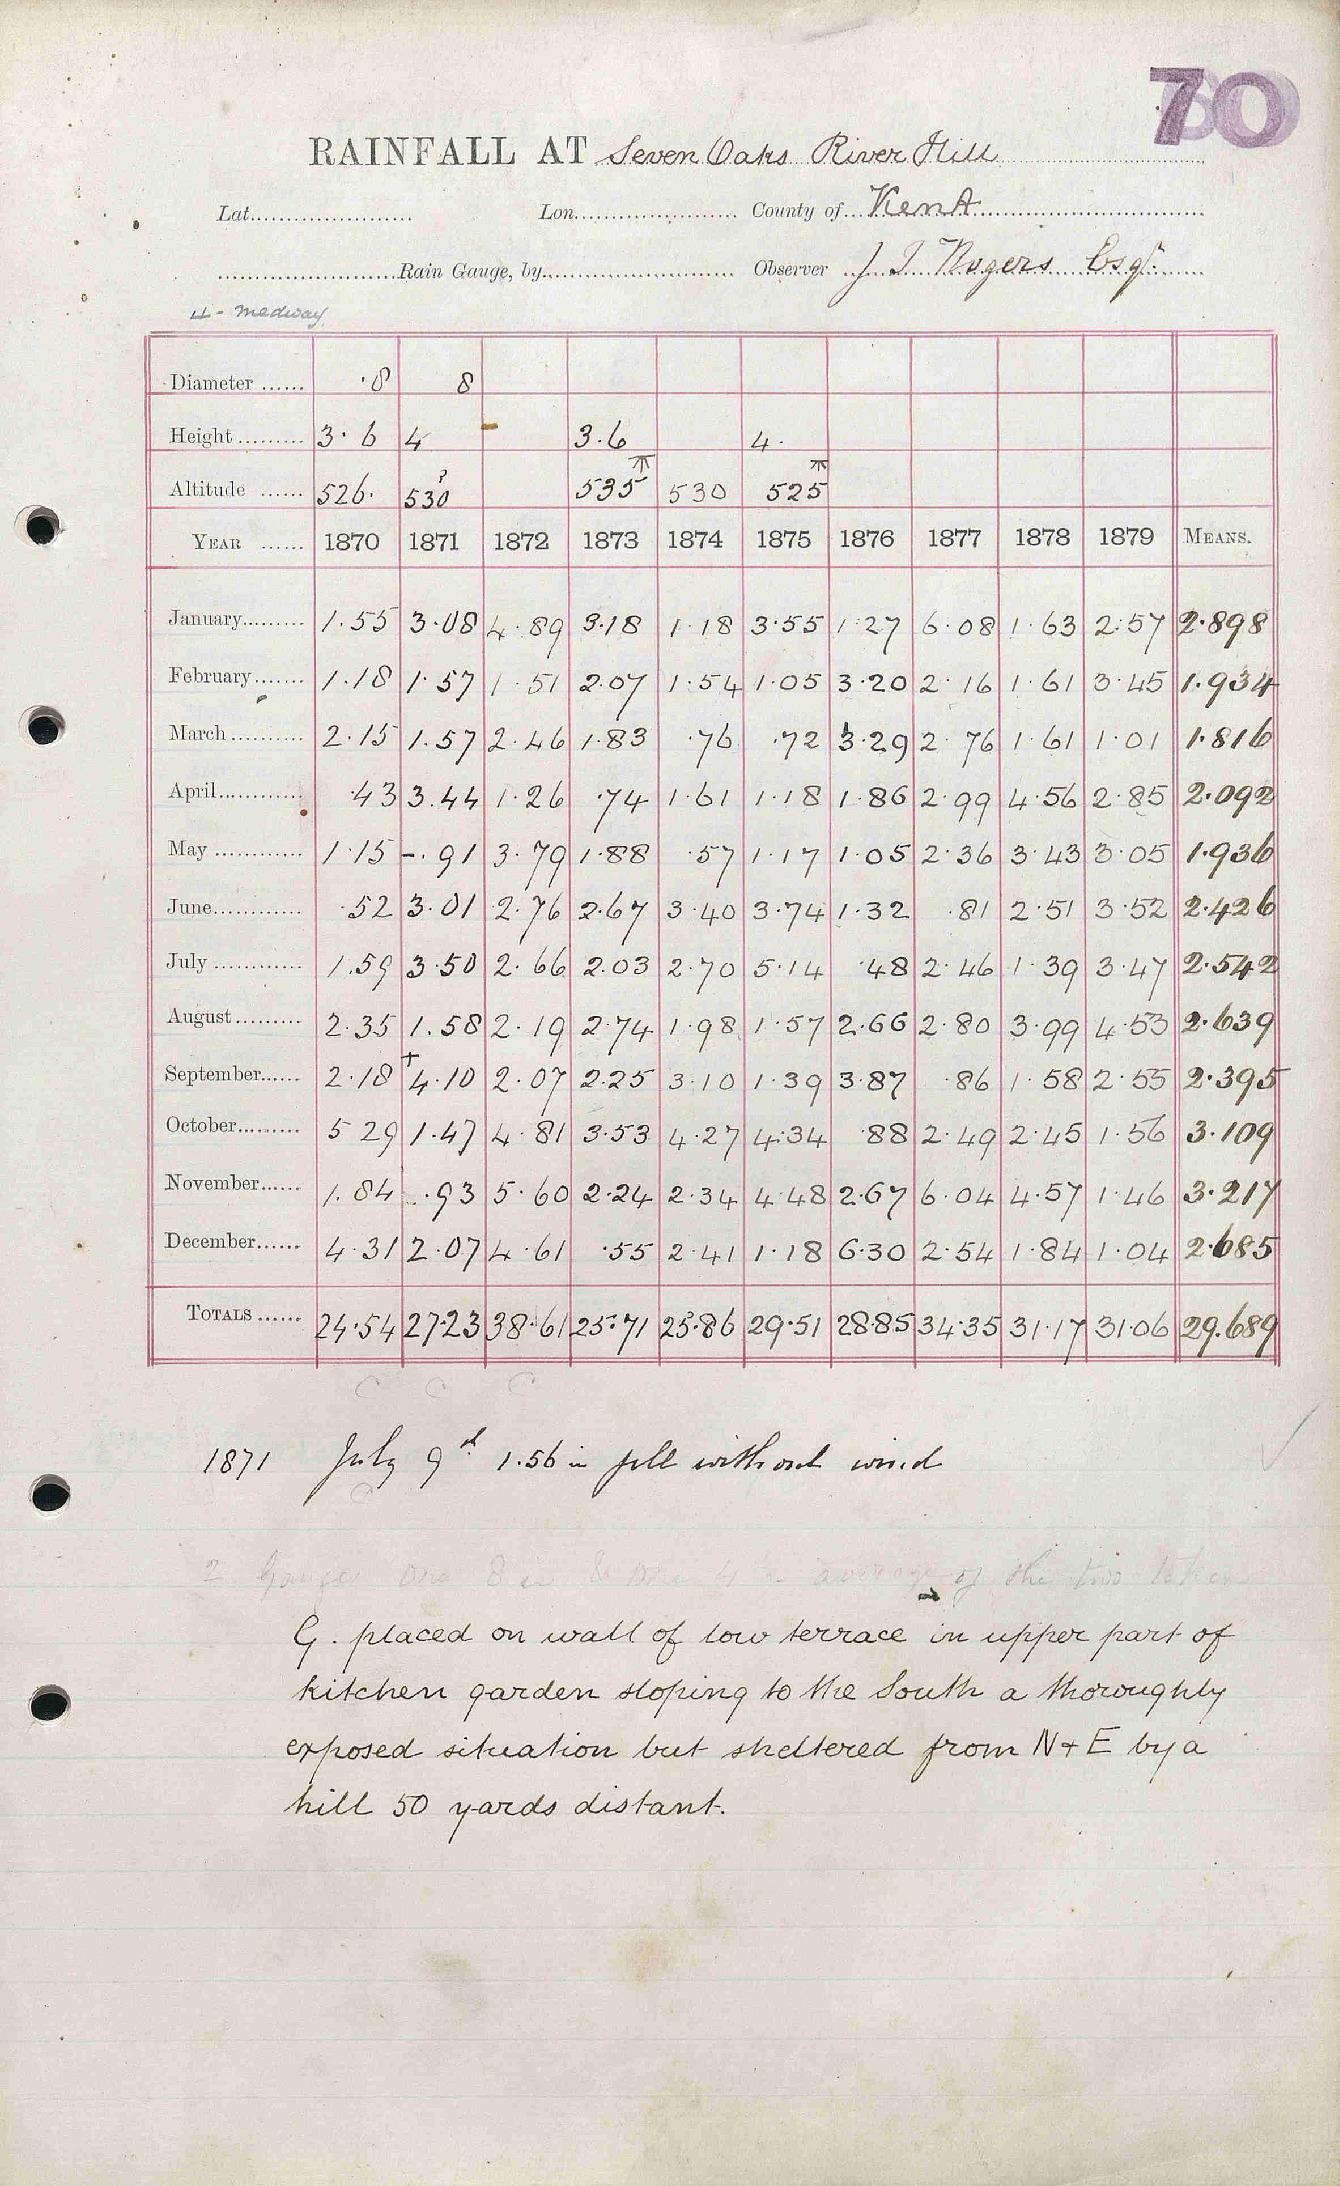 70
RAINFALL AT Seven Oaks River Hill
Lat. Lon. County of Kent
Rain Gauge, by Observer J. T. Rogers Esqr.
4 - Medway
Diameter ...... ·8 8
Height ......... 3·6 4 3.6 4·
Altitude ...... 526· 530? 535 530 525
YEAR ...... 1870 1871 1872 1873 1874 1875 1876 1877 1878 1879 MEANS.
January ......... 1.55 3·08 4·89 3·18 1·18 3·55 1·27 6·08 1·63 2·57 2·898
February ....... 1·18 1·57 1·51 2·07 1·54 1·05 3·20 2·16 1·61 3·45 1·934
March .......... 2·15 1.57 2·46 1·83 ·76 ·72 3·29 2·76 1·61 1·01 1·816
April ............ ·43 3.44 1·26 ·74 1·61 1·18 1·86 2·99 4·56 2·85 2·092
May ............ 1·15 -·91 3·79 1·88 ·57 1·17 1·05 2·36 3·43 3·05 1·936
June ............ ·52 3·01 2·76 2·67 3·40 3·74 1·32 ·81 2·51 3·52 2·426
July ............ 1.59 3·50 2·66 2·03 2·70 5·14 ·48 2·46 1·39 3·47 2·542
August ......... 2·35 1.58 2·19 2·74 1·98 1·57 2·66 2·80 3·99 4·53 2·639
September ...... 2·18 +4·10 2·07 2·25 3·10 1·39 3·87 ·86 1·58 2·55 2·395
October ......... 5 29 1·47 4·81 3·53 4·27 4·34 ·88 2·49 2·45 1·56 3·109
November ...... 1.84 ·93 5·60 2·24 2·34 4·48 2·67 6·04 4·57 1·46 3·217
December ...... 4·31 2·07 4·61 ·55 2·41 1·18 6·30 2·54 1·84 1·04 2·685
TOTALS ...... 24·54 27·23 38·61 25·71 25·86 29·51 28·85 34·35 31·17 31·06 29.689
1871 July 9th 1.56 in fell without wind
2 Gauges one 8 in & one 4 in average of the two taken
G. placed on wall of low terrace in upper part of
kitchen garden sloping to the South a thoroughly
exposed situation but sheltered from N + E by a
hill 50 yards distant.